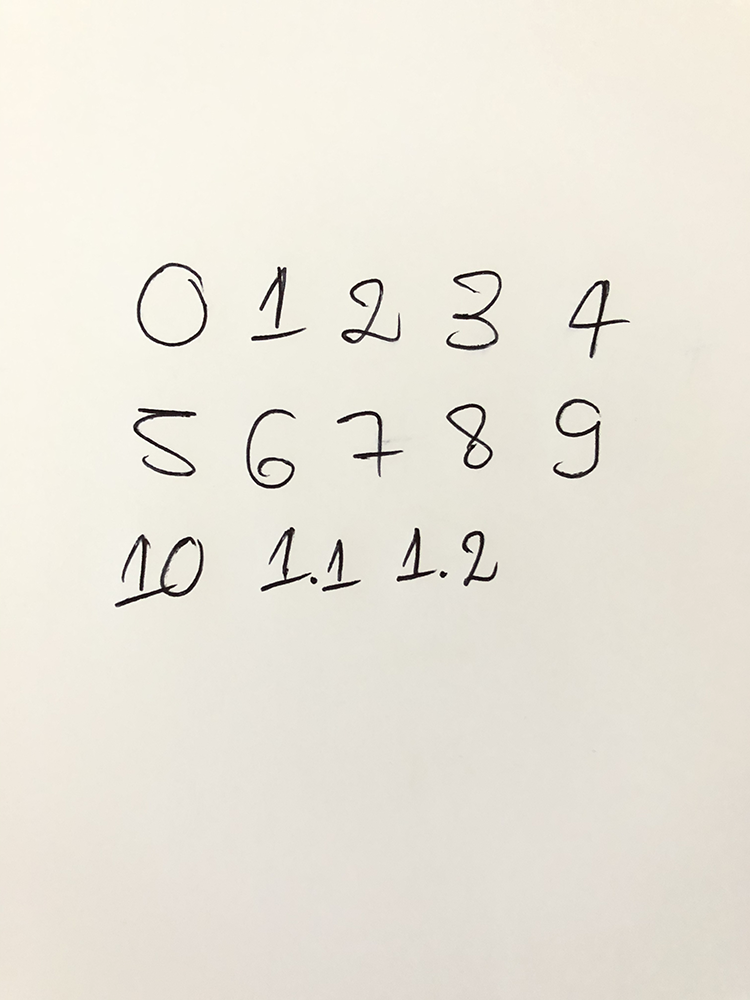 0 1 2 3 4
5 6 7 8 9
10 1.1 1.2